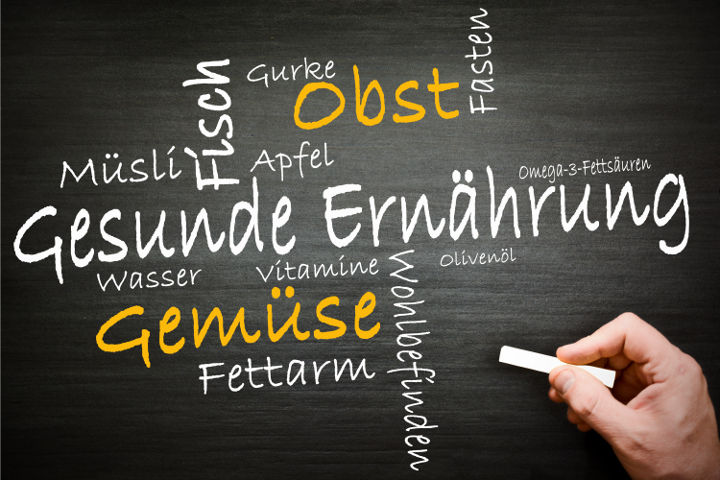 Fasten
Gurke
Obst
Fisch
Müsli
Apfel
Omega-3-Fettsäuren
Gesunde Ernährung
Wasser
Vitamine
Olivenöl
Gemüse
Wohlbefinden
Fettarm